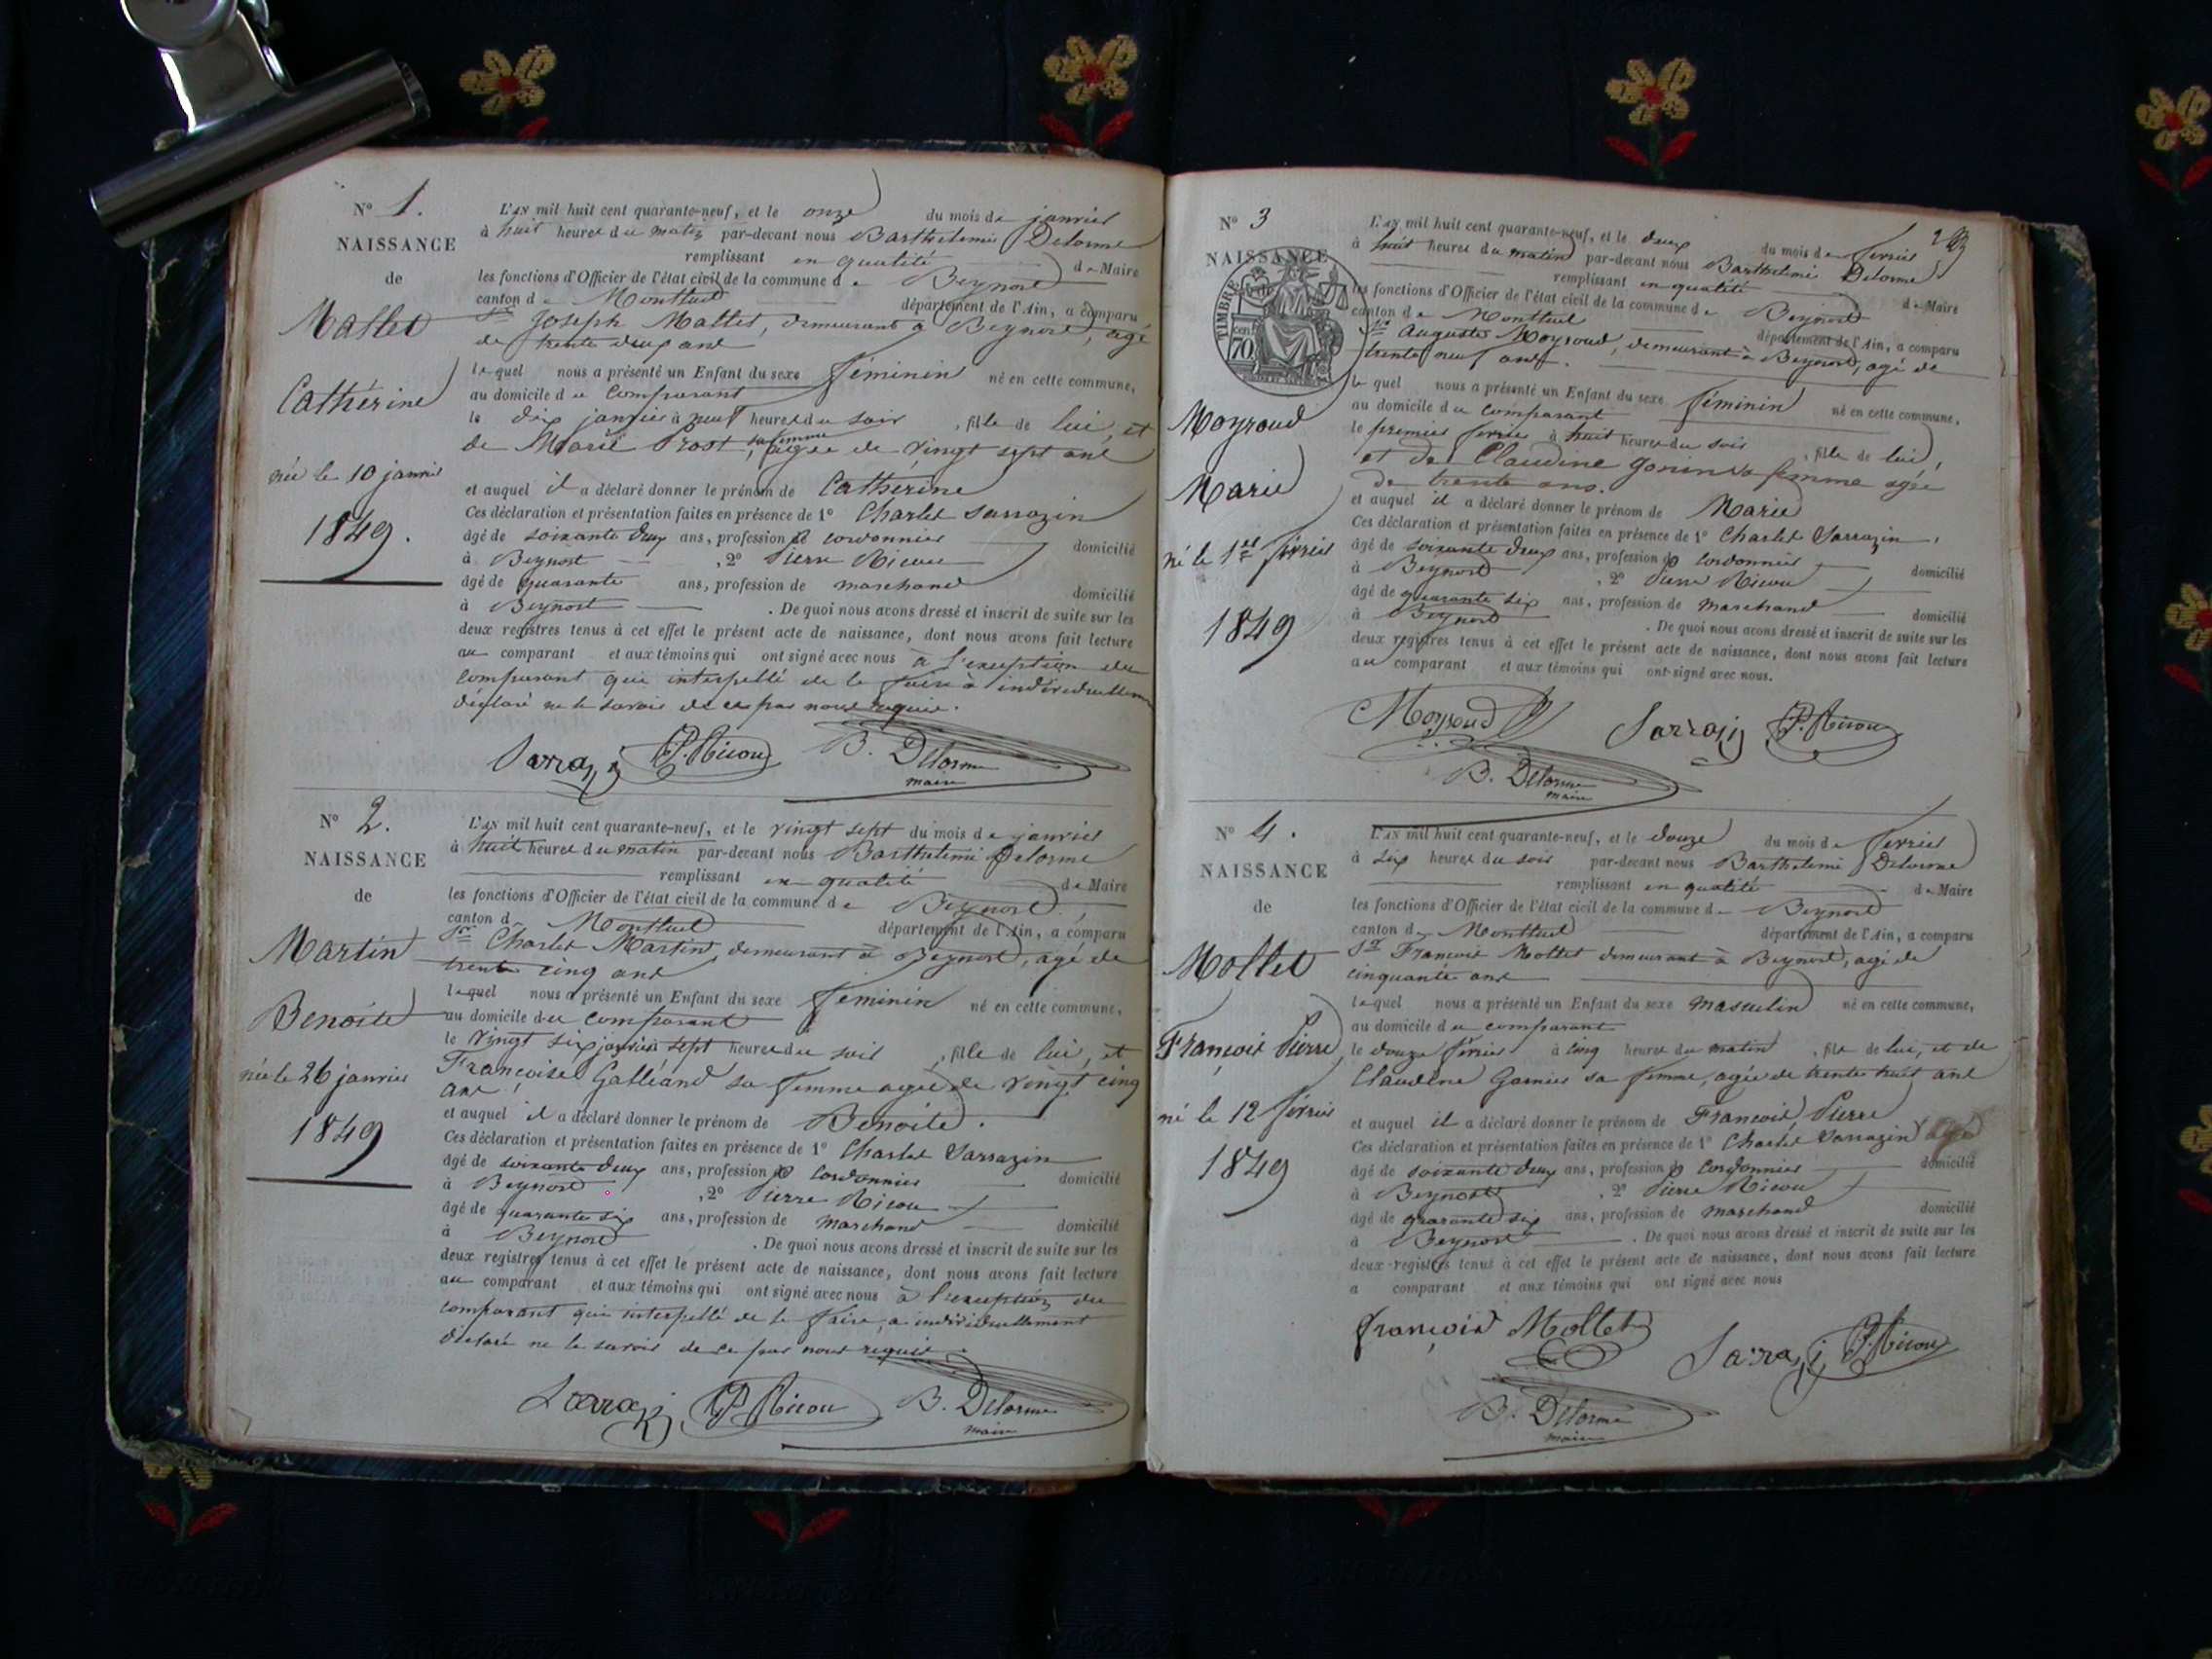 N° 1.
NAISSANCE
de
Mallet
Cathérine
née le 10 janvier
1849.
L'AN mil huit cent quarante-neuf, et le onze du mois de janvier
à huit heures du matin par-devant nous Barthelemie Delorme
remplissant en qualité de Maire
les fonctions d'Officier de l'état civil de la commune de Beynost
canton de Montluel département de l'Ain, a comparu
Sr Joseph Mallet, demeurant à Beynost, agé
de trente deux ans
lequel nous a présenté un Enfant du sexe féminin né en cette commune,
au domicile du comparant
le dix janvier à neuf heures du soir, fille de lui, et
de Marie Prost, sa femme, agée de vingt sept ans
et auquel il a déclaré donner le prénom de Cathérine
Ces déclaration et présentation faites en présence de 1° Charles Sarrazin
âgé de soixante deux ans, profession de cordonnier domicilié
à Beynost, 2° Pierre Ricou
âgé de quarante ans, profession de marchand domicilié
à Beynost. De quoi nous avons dressé et inscrit de suite sur les
deux registres tenus à cet effet le présent acte de naissance, dont nous avons fait lecture
au comparant et aux témoins qui ont signé avec nous à l'exception du
comparant qui interpellé de le faire à individuellement
déclaré ne le savoir de ce par nous requis.
Sarrazin P. Ricou B. Delorme
maire
N° 2.
NAISSANCE
de
Martin
Benoite
née le 26 janvier
1849
L'AN mil huit cent quarante-neuf, et le vingt sept du mois de janvier
à huit heures du matin par-devant nous Barthelemi Delorme
remplissant en qualité de Maire
les fonctions d'Officier de l'état civil de la commune de Beynost,
canton d Montluel département de l'Ain, a comparu
Sr Charles Martin, demeurant à Beynost, agé de
trente cinq ans
lequel nous a présenté un Enfant du sexe féminin né en cette commune,
au domicile du comparant
le vingt six janvier à sept heures du soir, fille de lui, et
Françoise Galléand sa femme agée de vingt cinq
ans
et auquel il a déclaré donner le prénom de Benoite.
Ces déclaration et présentation faites en présence de 1° Charles Sarrazin
âgé de soixante deux ans, profession de cordonnier domicilié
à Beynost, 2° Pierre Ricou
âgé de quarante six ans, profession de marchand domicilié
à Beynost. De quoi nous avons dressé et inscrit de suite sur les
deux registres tenus à cet effet le présent acte de naissance, dont nous avons fait lecture
au comparant et aux témoins qui ont signé avec nous à l'exception du
comparant qui interpellé de le faire, a individuellement
déclaré ne le savoir de ce par nous requis.
Sarrazin P. Ricou B. Delorme
maire
2
N° 3
NAISSANCE
TIMBRE
70
cen.
Moyroud
Marie
né le 1er février
1849
L'AN mil huit cent quarante-neuf, et le deux du mois de février
à huit heures du matin par-devant nous Barthelemi Delorme
remplissant en qualité de Maire
les fonctions d'Officier de l'état civil de la commune de Beynost
canton de Montluel département de l'Ain, a comparu
Sr Auguste Moyroud, demeurant à Beynost, agé de
trente neuf ans.
lequel nous a présenté un Enfant du sexe féminin né en cette commune,
au domicile du comparant
le premier février à huit heures du soir, fille de lui,
et de Claudine Gonin sa femme agée
de trente ans.
et auquel il a déclaré donner le prénom de Marie
Ces déclaration et présentation faites en présence de 1° Charles Sarrazin,
âgé de soixante deux ans, profession de cordonnier domicilié
à Beynost, 2° Pierre Ricou
âgé de quarante six ans, profession de marchand domicilié
à Beynost. De quoi nous avons dressé et inscrit de suite sur les
deux registres tenus à cet effet le présent acte de naissance, dont nous avons fait lecture
au comparant et aux témoins qui ont signé avec nous.
Moyroud Sarrazin P. Ricou
B. Delorme
maire
N° 4.
NAISSANCE
de
Mollet
François Pierre
né le 12 février
1849
L'AN mil huit cent quarante-neuf, et le douze du mois de février
à six heures du soir par-devant nous Barthelemi Delorme
remplissant en qualité de Maire
les fonctions d'Officier de l'état civil de la commune de Beynost
canton de Montluel département de l'Ain, a comparu
Sr François Mollet demeurant à Beynost, agé de
cinquante ans
lequel nous a présenté un Enfant du sexe masculin né en cette commune,
au domicile du comparant
le douze février à cinq heures du matin, fils de lui, et de
Claudine Garnier sa femme, agée de trente huit ans
et auquel il a déclaré donner le prénom de François, Pierre
Ces déclaration et présentation faites en présence de 1° Charles Sarrazin
âgé de soixante deux ans, profession de cordonnier domicilié
à Beynost, 2° Pierre Ricou
âgé de quarante six ans, profession de marchand domicilié
à Beynost. De quoi nous avons dressé et inscrit de suite sur les
deux registres tenus à cet effet le présent acte de naissance, dont nous avons fait lecture
a comparant et aux témoins qui ont signé avec nous
françois Mollet Sarrazin P. Ricou
B. Delorme
maire